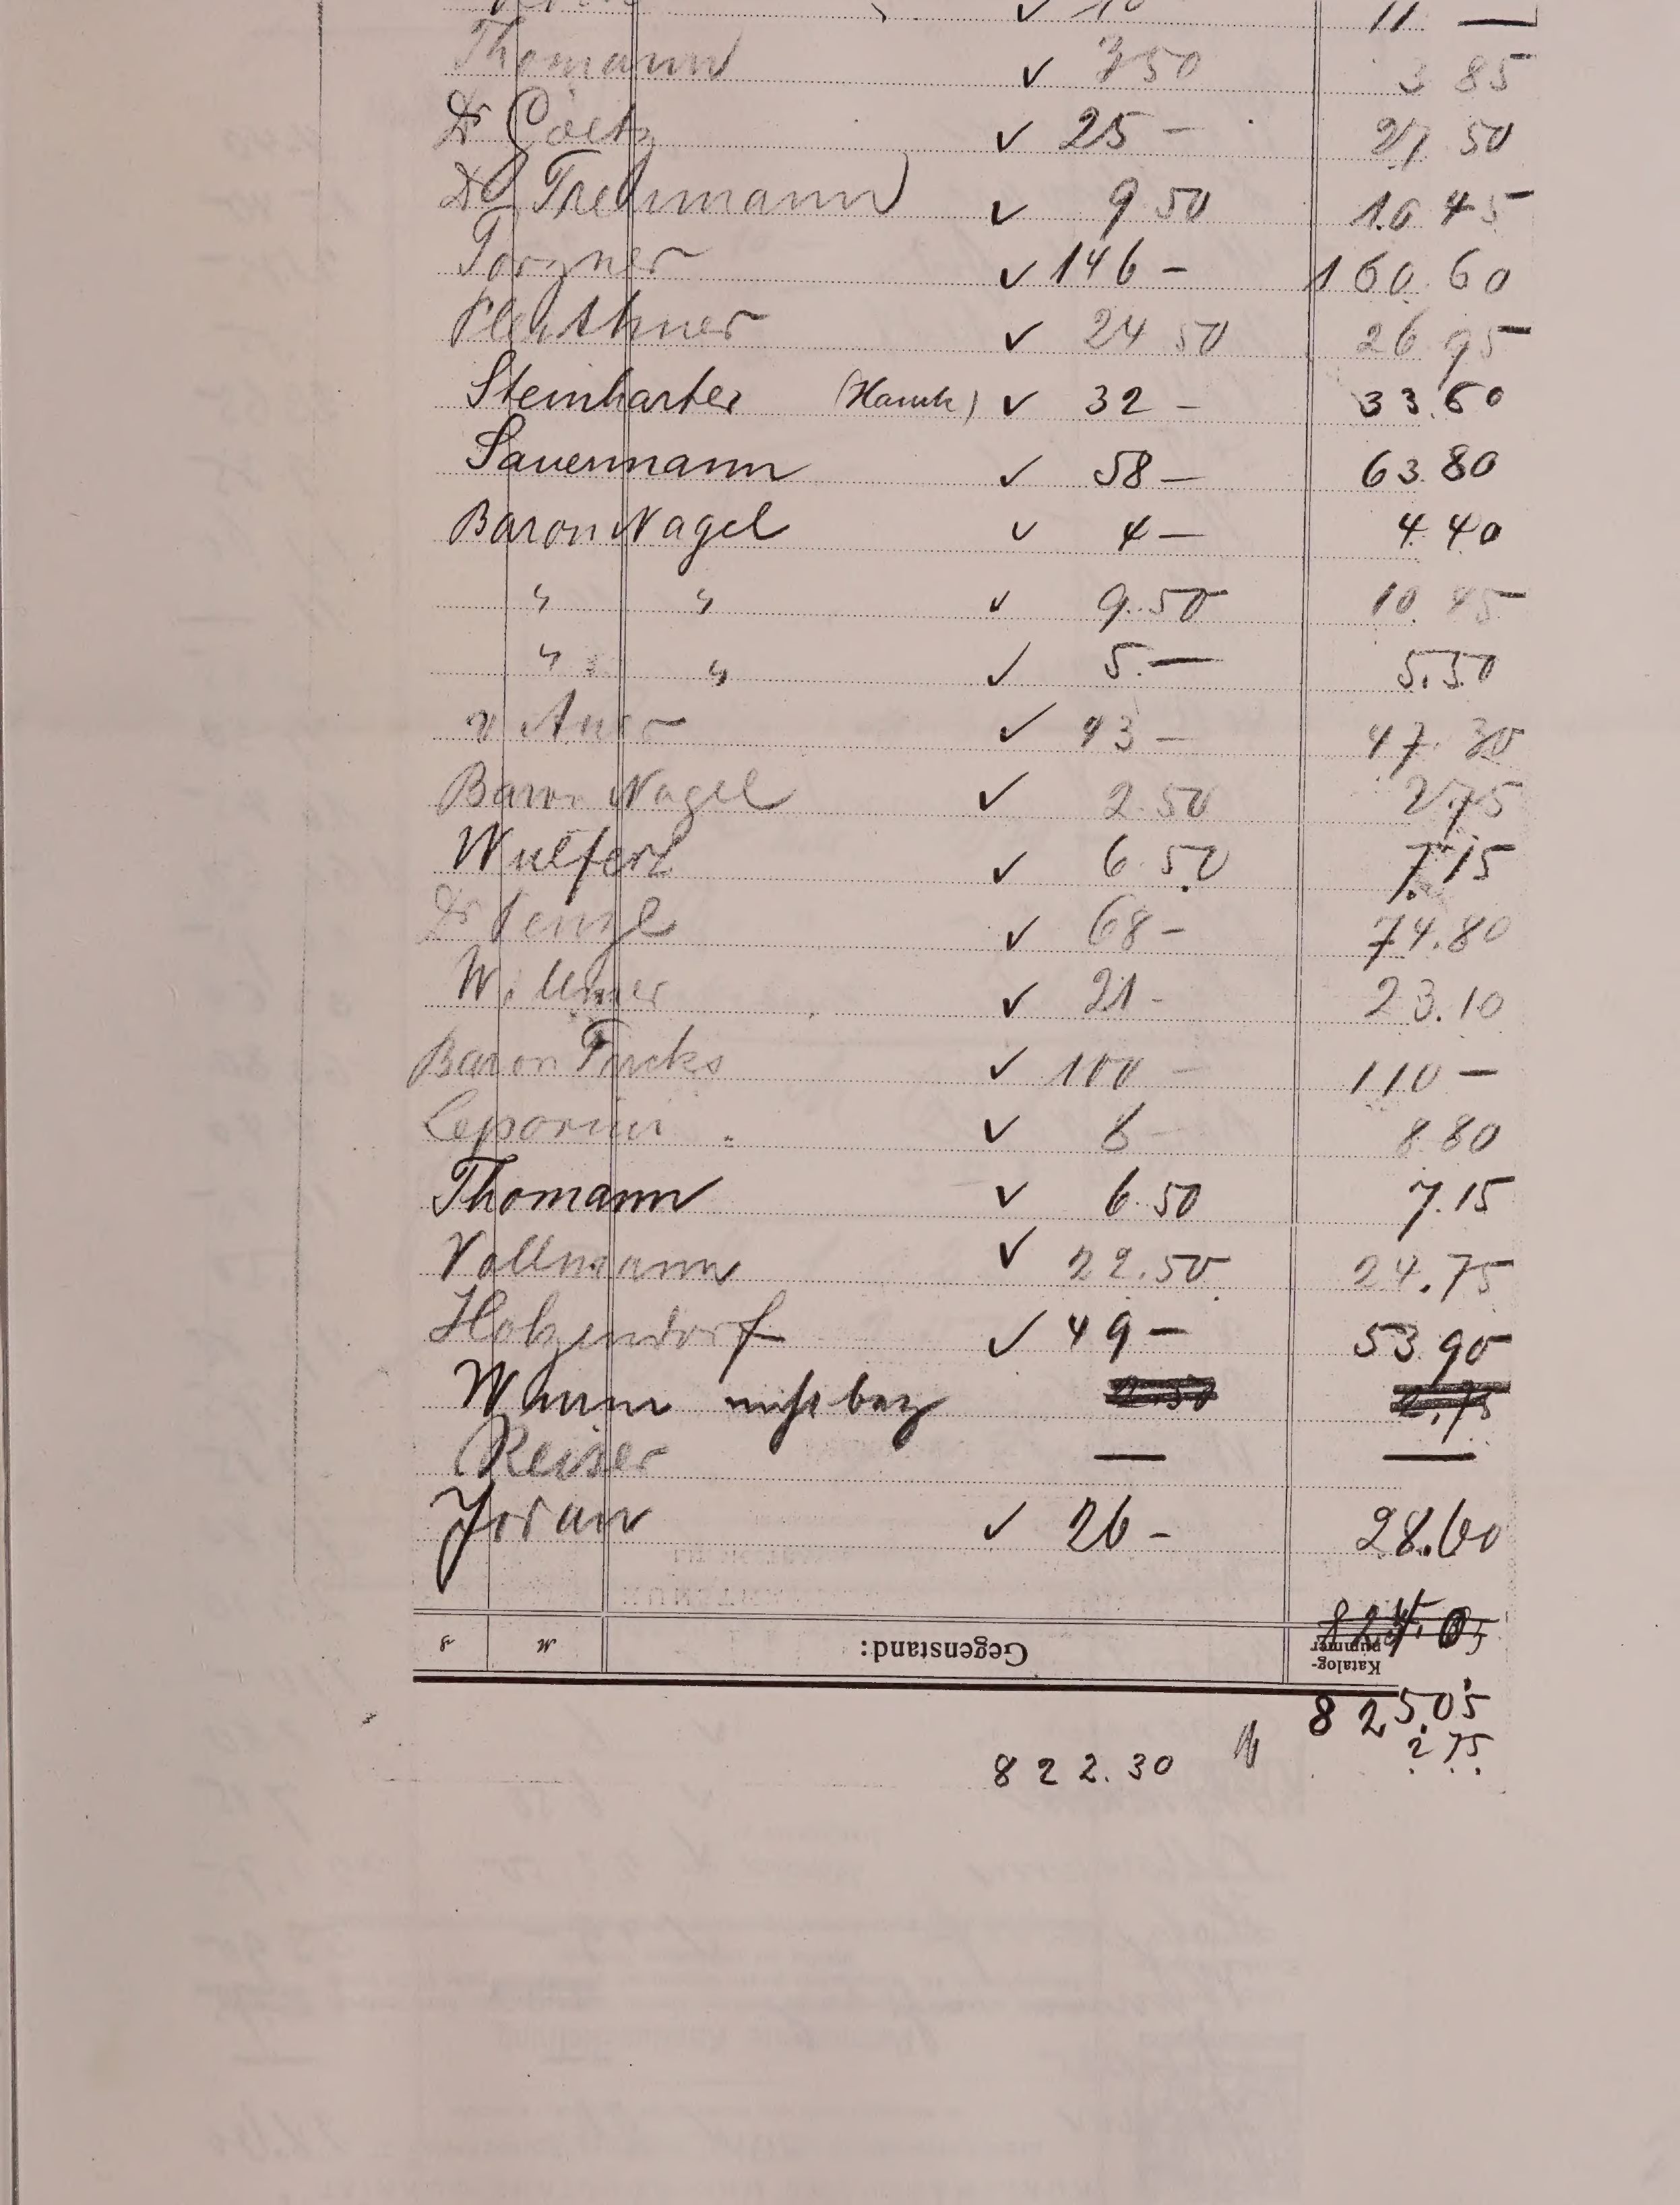 ✓ 10 11. —
Thomann ✓ 3 50 3 85
Dr Goetz ✓ 25 — 27 50
Dr Trettmann ✓ 9 50 10 45
✓ 146 — 160. 60
✓ 24 50 26 95
Steinharter (Hauck) ✓ 32 — 33.60
Sauermann ✓ 58 — 63.80
Baron Nagel ✓ 4 — 4.40
" " ✓ 9.50 10.45
" " ✓ 5.— 5.50
v ✓ 43 — 47.30
Baron Nagel ✓ 2.50 2.75
Wulfert ✓ 6.50 7.15
Dr ✓ 68 — 74.80
Willmer ✓ 21 - 23.10
Baron Fircks ✓ 100 — 110 —
Leporini ✓ 8 — 8.80
Thomann ✓ 6.50 7.15
Vollmann ✓ 22.50 24.75
Holzendorf ✓ 49 — 53.90
nicht bez 2.50 2.75
Reiser — —
Jordan ✓ 26 — 28.60
Gegenstand: Katalog-nummer
825.05
2 75
822.30